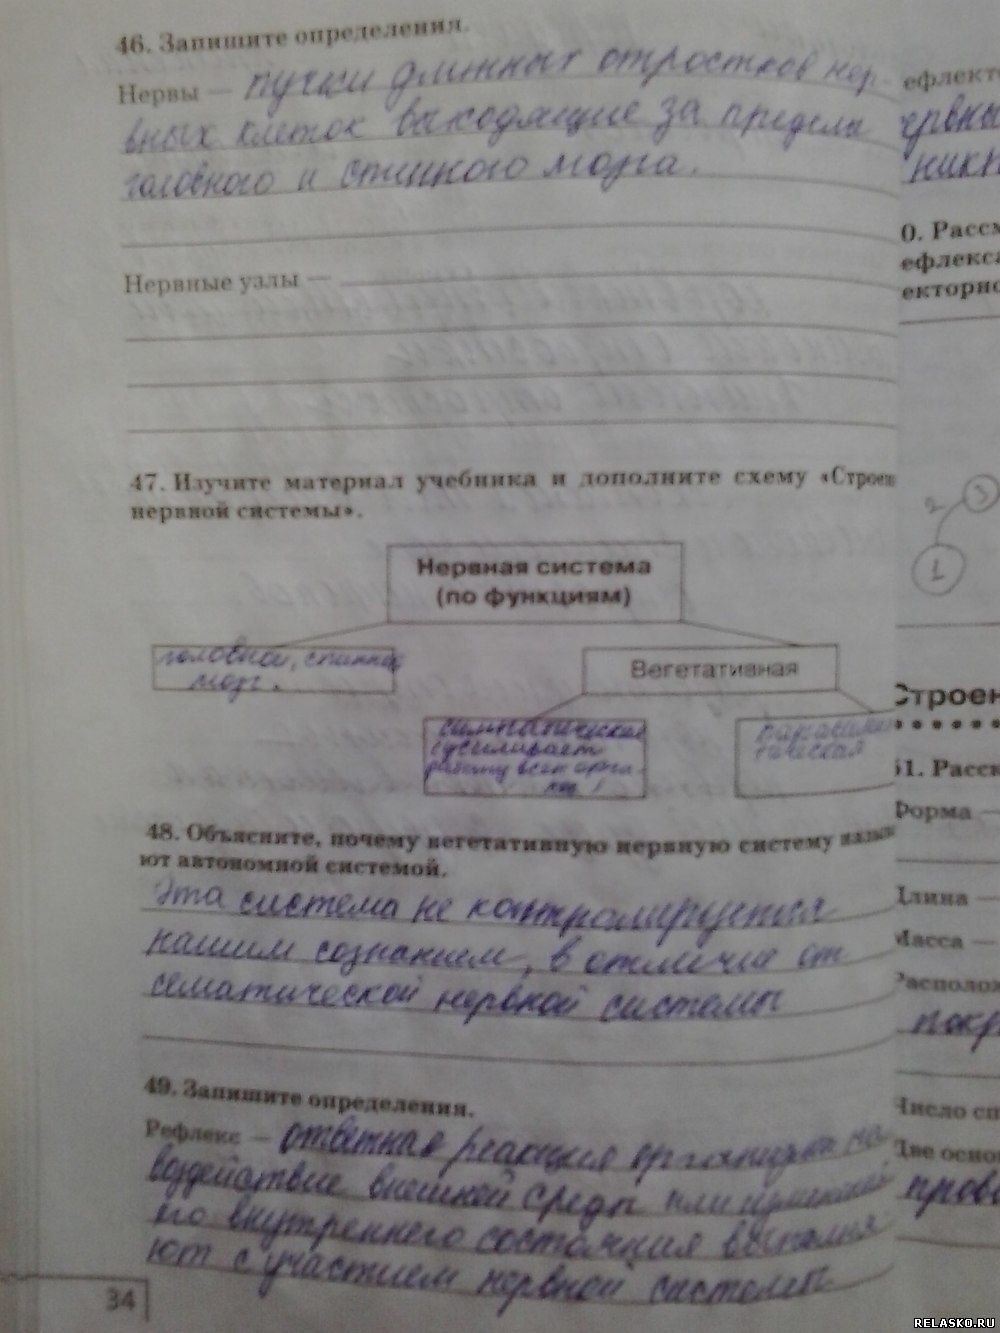 46. Запишите определения.
Нервы — пучки длинных отростков нер-
вных клеток выходящие за пределы
головного и спинного мозга.
Нервные узлы —
47. Изучите материал учебника и дополните схему «Строен
нервной системы».
Нервная система
(по функциям)
головной, спинной
мозг.
Вегетативная
симпатическая
(усиливает
работу всех орга-
парасимпа
тическая
48. Объясните, почему вегетативную нервную систему назыв
ют автономной системой.
Эта система не контролируется
нашим сознанием, в отличие от
сематической нервной системы
49. Запишите определения.
Рефлекс — ответная реакция организма на
воздействие внешней среды или изменение
его внутреннего состояния выполня
ют с участием нервной системы
34
ефлекто
ервны
никн
0. Рассм
ефлекса
екторно
2
3
1
Строен
51. Расск
Форма —
Длина —
Масса —
Располож
покр
Число сп
Две основ
прово
RELASKO.RU